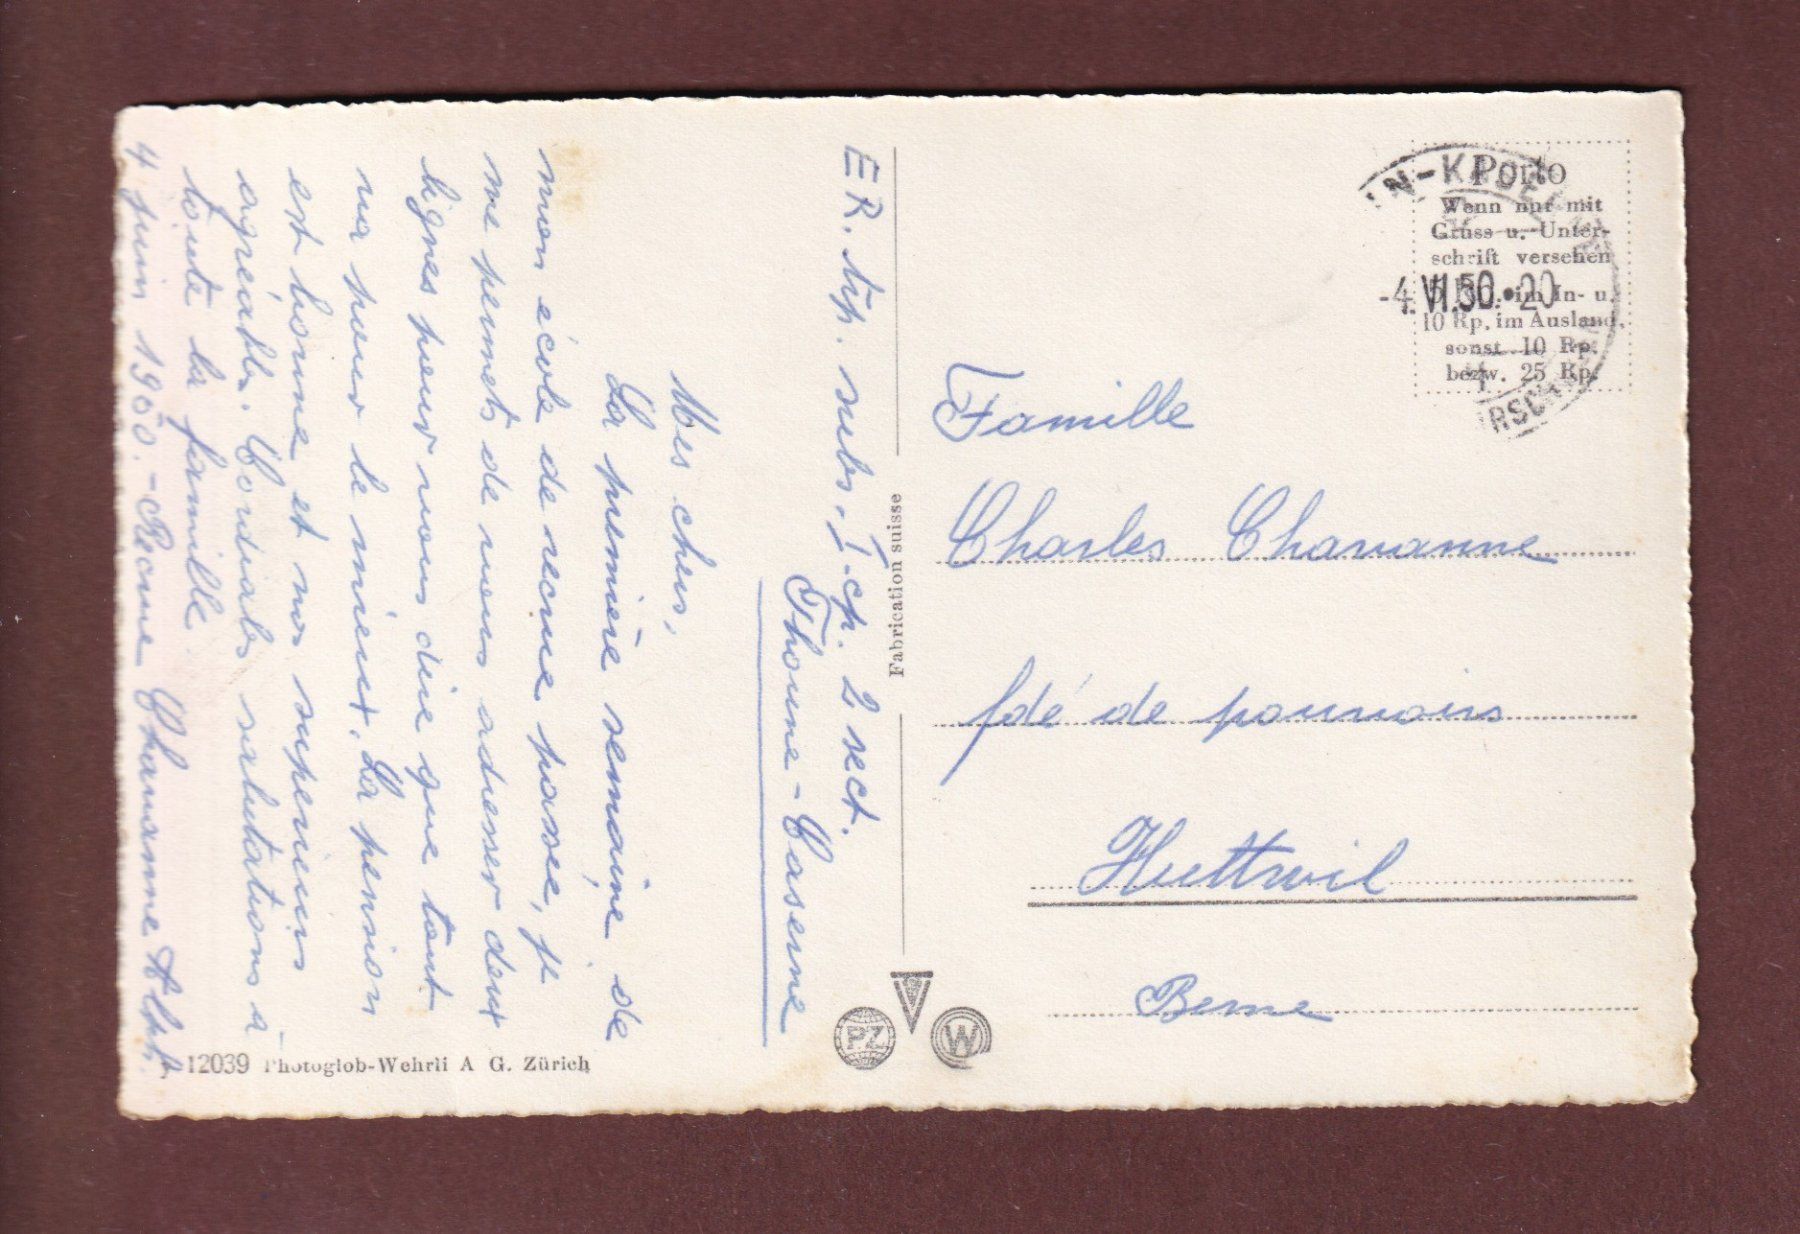 ER. tip. subs. I. cp. 2 sect.
Thoune-Caserne
Mes chers,
La première semaine de
mon école de recrue passe, je
me permets de vous adresser deux
lignes pour vous dire que tout
va pour le mieux. La pension
est bonne et nos supérieurs
agréabls. Cordials salutations à
toute la famille.
4 juin 1950. - Recrue Chavanne Alph.
12039 Photoglob-Wehrli A G. Zürich
Fabrication suisse
PZ
W
Porto
Wenn nur mit
Gruss u. Unter-
schrift versehen
5 Rp. im In- u.
10 Rp. im Ausland,
sonst 10 Rp.
bezw. 25 Rp.
-4.VI.50.•20
Famille
Charles Chavanne
fdé de pouvoirs
Huttwil
Berne